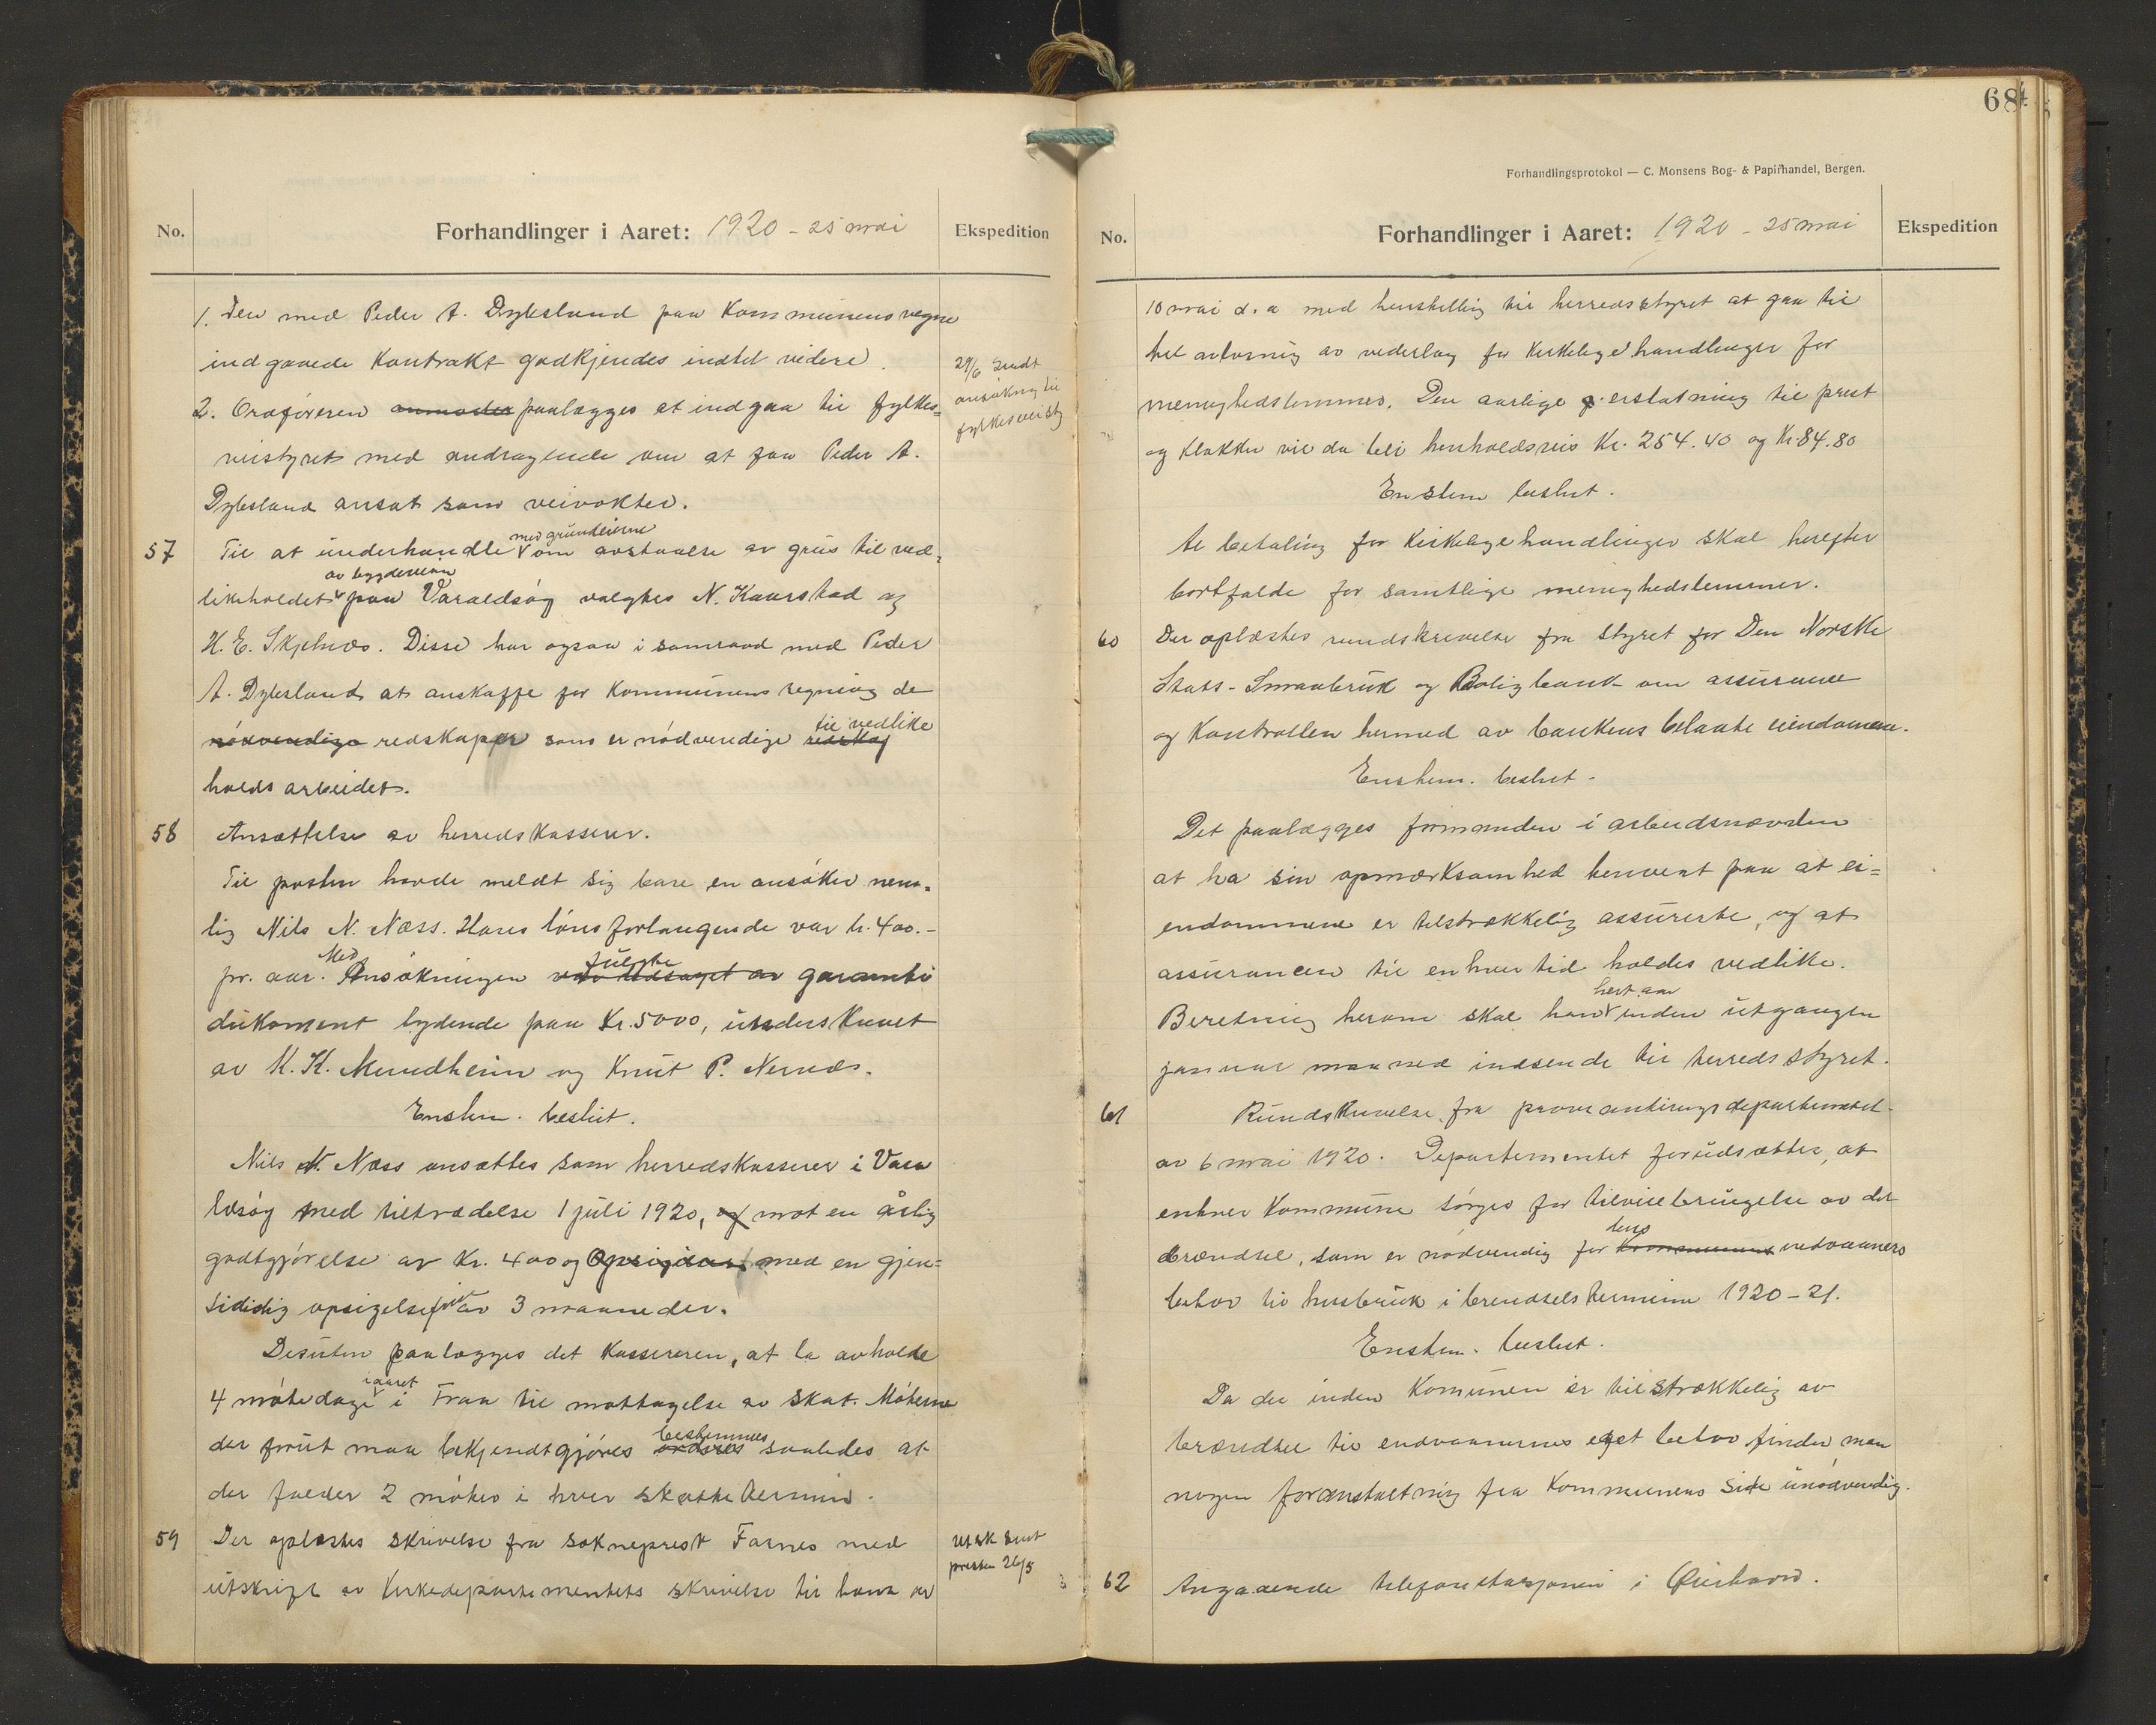 No.
Forhandlinger i Aaret: 1920 - 25 mai
Ekspedition
1. Den med Peder A. Dybesland paa Kommunens vegne
indgaaede Kontrakt godkjendes indtil videre.
2. Ordføreren anmodes paalægges at indgaa til fylkes-
veistyret med andragende om at faa Peder A.
Dybesland ansat som veivokter.
29/6 Sendt
ansøkning til
fylkesveist
57
Til at underhandle med grundeierne om avstaaelse av grus til ved-
likeholdet av bygdeveien paa Varaldsøy valgtes N. Kaarstad og
H. E. Skjelnæs. Disse har ogsaa i samraad med Peder
A. Dybesland at anskaffe for Kommunens regning de
nødvendige redskaper som er nødvendige redskap til vedlike
holds arbeidet.
58
Ansættelse av herredskasserer.
Til posten havde meldt sig bare en ansøker nem-
lig Nils N. Næss. Hans lønsforlangende var kr. 400.-
pr. aar. Med Ansøkningen var ledsaget av fulgte garanti
dokument lydende paa Kr. 5000, underskrevet
av K. K. Mundheim og Knut P. Nernæs.
Enstem. beslut.
Nils N. Næss ansættes som herredskasserer i Vara
ldsøy med tiltrædelse 1 juli 1920, og mot en årlig
godtgjørelse av Kr. 400 og Opsigelse med en gjen-
sididig opsigelsefrist av 3 maaneder.
Desuten paalægges det Kassereren, at la avholde
4 møtedage i aaret i Fraa til mottagelse av skat. Møterne
der forut maa bekjendtgjøres ordnes bestemmes saaledes at
der falder 2 møter i hver skattetermin.
59
Der oplæstes skrivelse fra sokneprest Farnes med
utskrift av Kirkedepartementets skrivelse til ham av
utsk sent
presten 26/5
68
Forhandlingsprotokol — C. Monsens Bog- & Papirhandel, Bergen.
No.
Forhandlinger i Aaret: 1920 - 25 mai
Ekspedition
10 mai d.a med henstelling til herredsstyret at gaa til
hel avløsning av vederlag for Kirkelige handlinger for
menighedslemmer. Den aarlige erstatning til prest
og Klokker vil da bli henholdsvis Kr. 254.40 og Kr 84.80
Enstem beslut.
At betaling for Kirkelige handlinger skal herefter
bortfalde for samtlige menighedslemmer.
60
Der oplæstes rundskrivelse fra Styret for Den Norske
Stats-Smaabruk og Boligbank om assurance
og Kontrollen hermed av bankens belaante eiendomme.
Enstem. beslut.
Det paalægges formanden i arbeidsnævnden
at ha sin opmærksomhed henvent paa at ei-
endommene er tilstrækkelig assurerte, og at
assurancen til enhver tid holdes vedlike.
Beretning herom skal han hvert aar inden utgangen
januar maaned indsende til herredsstyret.
61
Rundskrivelse fra provianteringsdepartementet
av 6 mai 1920. Departementet forudsætter, at
enhver Kommune sørger for tilveiebringelse av det
brændsel, som er nødvendig for Kommunens dens indvaaners
behov til husbruk i brendselsterminen 1920-21.
Enstem. beslut.
Da der inden Komunen er tilstrækkelig av
brændsel til endvaanernes eget behov finder man
nogen foranstaltning fra Kommunens Side unødvendig.
62
Angaaende telefonstasjonen i Øierhavn.